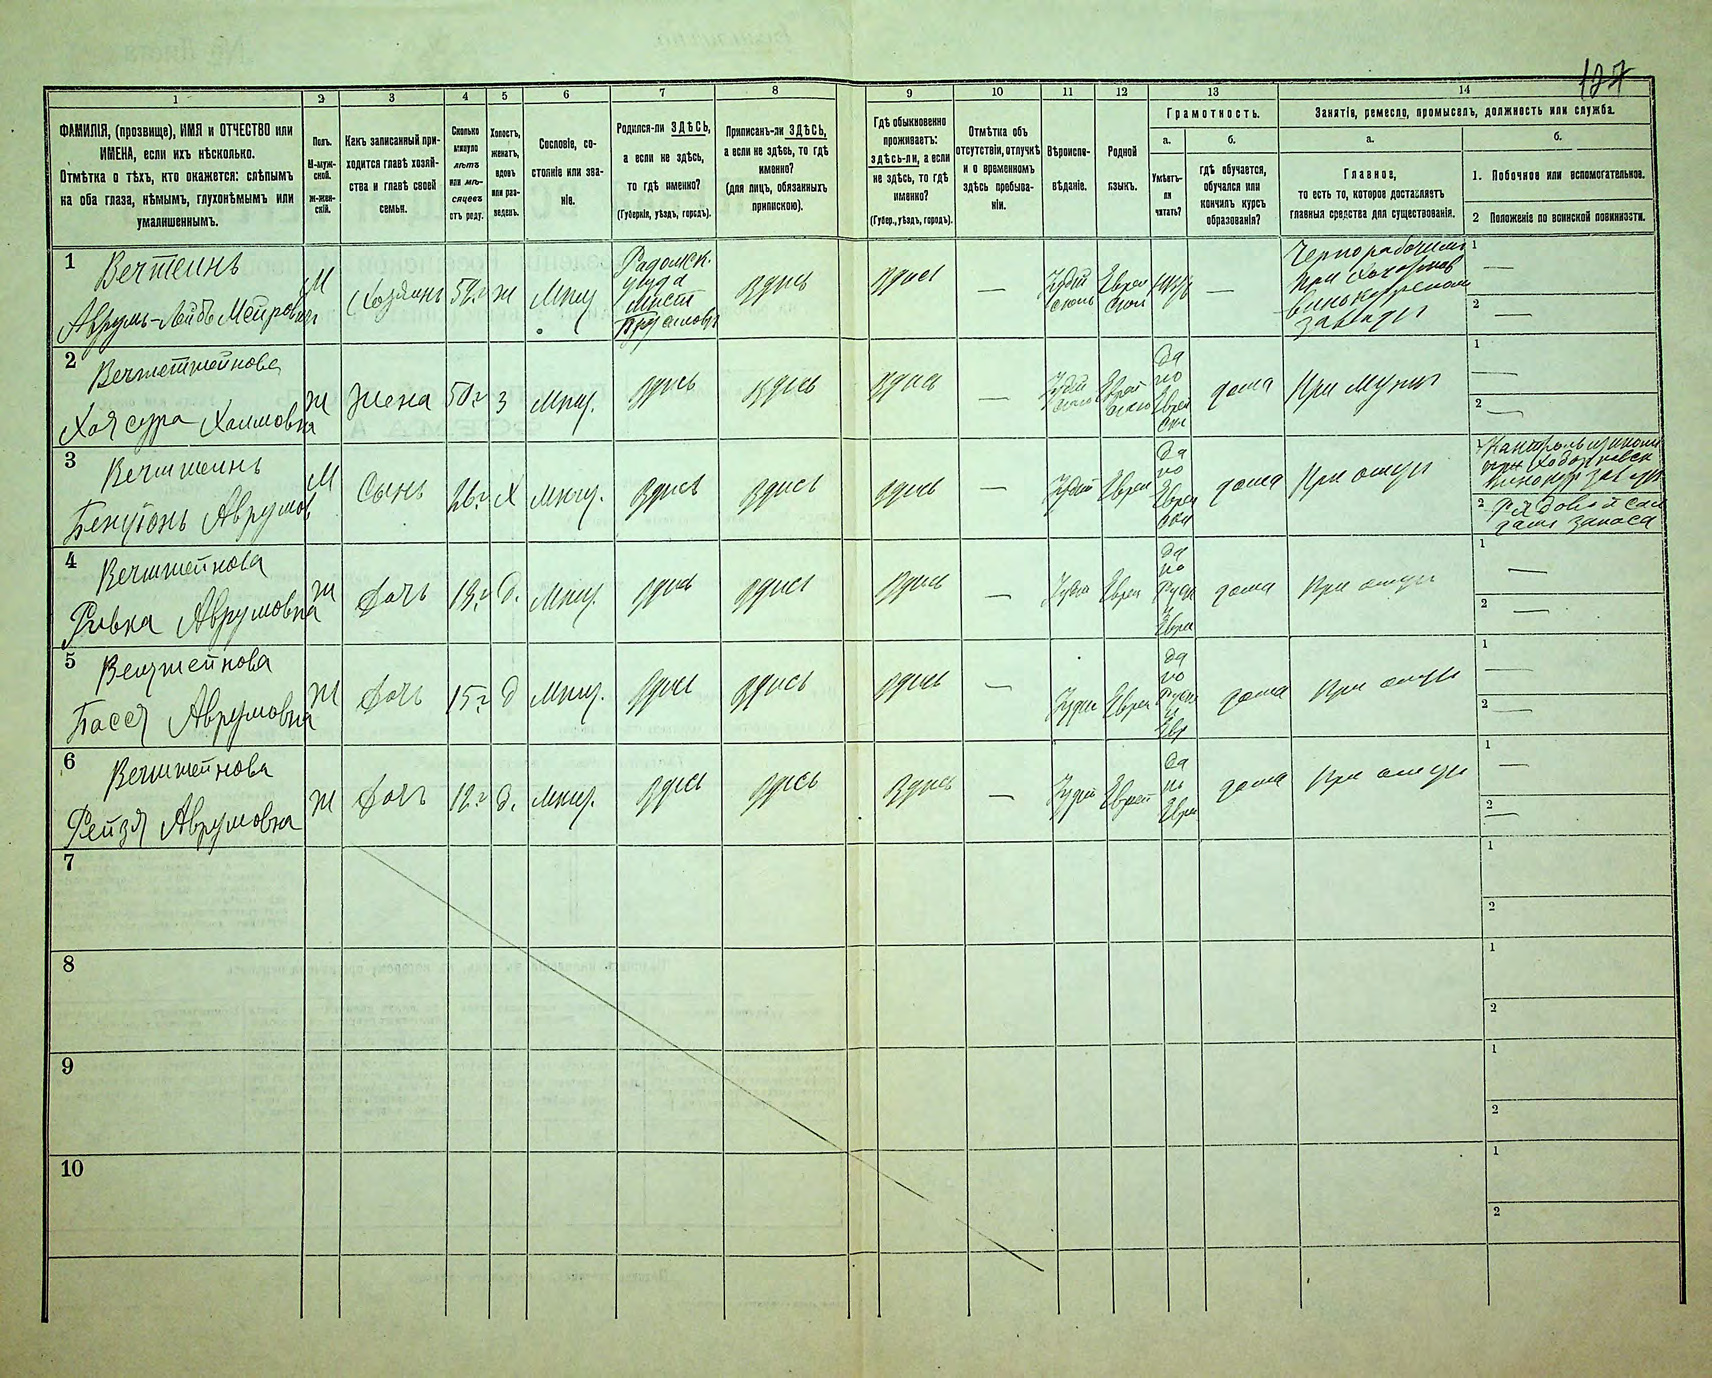 127
1 2 3 4 5 6 7 8 9 10 11 12 13 14
ФАМИЛІЯ, (прозвище), ИМЯ и ОТЧЕСТВО или
ИМЕНА, если ихъ нѣсколько.
Отмѣтка о тѣхъ, кто окажется: слѣпымъ
на оба глаза, нѣмымъ, глухонѣмымъ или
умалишеннымъ.
Полъ.
М-муж-
ской.
Ж-жен-
скій.
Какъ записанный при-
ходится главѣ хозяй-
ства и главѣ своей
семьи.
Сколько
минуло
лѣтъ
или мѣ-
сяцевъ
отъ роду.
Холостъ,
женатъ,
вдовъ
или раз-
веденъ.
Сословіе, со-
стояніе или зва-
ніе.
Родился-ли ЗДѢСЬ,
а если не здѣсь,
то гдѣ именно?
(Губернія, уѣздъ, городъ).
Приписанъ-ли ЗДѢСЬ,
а если не здѣсь, то гдѣ
именно?
(для лицъ, обязанныхъ
припискою).
Гдѣ обыкновенно
проживаетъ:
здѣсь-ли, а если
не здѣсь, то гдѣ
именно?
(Губер., уѣздъ, городъ).
Отмѣтка объ
отсутствіи, отлучкѣ
и о временномъ
здѣсь пребыва-
ніи.
Вѣроиспо-
вѣданіе.
Родной
языкъ.
Грамотность.
а.
Умѣетъ-
ли
читать?
б.
гдѣ обучается,
обучался или
кончилъ курсъ
образованія?
Занятіе, ремесло, промыселъ, должность или служба.
а.
Главное,
то есть то, которое доставляетъ
главныя средства для существованія.
б.
1. Побочное или вспомогательное.
2 Положеніе по воинской повинности.
1 Вечтеинъ
Аврумъ-Лейбъ Меировъ
М Хозяинъ 52 г Ж Мѣщ
Радомск.
уѣзда
здѣсь здѣсь — Іудей Еврей —
Чернорабочимъ
при
винокуренномъ
заводѣ
1 —
2 —
2 Вечтештейнова
Хая сура Хаимовна
Ж Жена 50 г З Мѣщ. здѣсь здѣсь здѣсь
да
по
Еврей
дома При мужѣ
1 —
2 —
3 Вечштеинъ
Аврумов
М Сынъ 26 г Х Мѣщ. здѣсь здѣсь здѣсь — Іудей Еврей
да
по
Еврей
дома При отцѣ
1
2 Рядовой
запаса
4 Вечштейнова
Ривка Аврумовна
Ж Дочь 18 г д. Мѣщ. здѣсь здѣсь здѣсь — Іудей Еврей
да
по
Русск
и
Евре
дома При отцѣ
1 —
2 —
5 Вечштейнова
Бася Аврумовна
Ж Дочь 15 г д Мѣщ. здѣсь здѣсь здѣсь — Іудей Еврей
да
по
Русск
и
Евр
дома При отцѣ
1 —
2 —
6 Вечштейнова
Рейзя Аврумовна
Ж Дочь 12 г д. Мѣщ. здѣсь здѣсь здѣсь — Іудей Еврей
да
по
Евре
дома При отцѣ
1 —
2 —
7 1
2
8 1
2
9 1
2
10 1
2